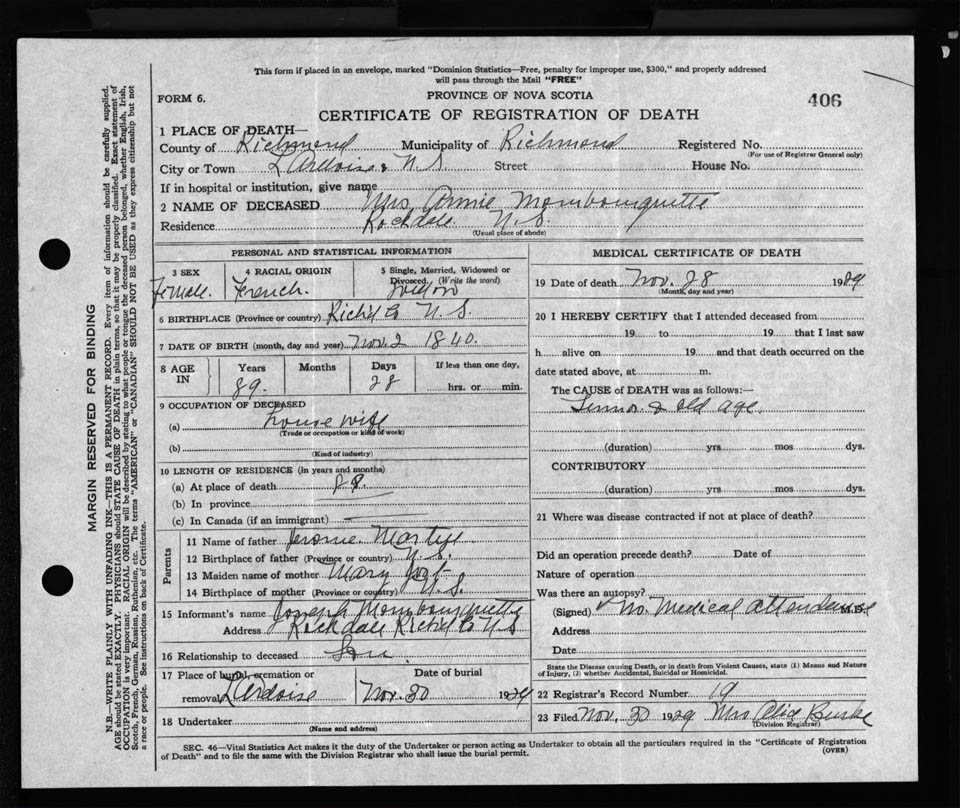 This form if placed in an envelope, marked "Dominion Statistics—Free, penalty for improper use, $300," and properly addressed
will pass through the Mail "FREE"
FORM 6.
PROVINCE OF NOVA SCOTIA
406
CERTIFICATE OF REGISTRATION OF DEATH
1 PLACE OF DEATH—
County of Richmond Municipality of Richmond Registered No.
(For use of Registrar General only)
City or Town L'Ardoise N.S. Street House No.
If in hospital or institution, give name
2 NAME OF DECEASED Mrs. Annie Mombourquette
Residence Rockdale N.S.
(Usual place of abode)
PERSONAL AND STATISTICAL INFORMATION
3 SEX Female.
4 RACIAL ORIGIN French.
5 Single, Married, Widowed or Divorced. (Write the word)
6 BIRTHPLACE (Province or country) Richd Co N.S.
7 DATE OF BIRTH (month, day and year) Nov. 2 1840.
8 AGE IN Years 89. Months Days 28 If less than one day, hrs. or min.
9 OCCUPATION OF DECEASED
(a) house wife
(Trade or occupation or kind of work)
(b)
(Kind of industry)
10 LENGTH OF RESIDENCE (in years and months)
(a) At place of death
(b) In province
(c) In Canada (if an immigrant)
Parents
11 Name of father Jerome
12 Birthplace of father (Province or country) N.S.
13 Maiden name of mother Mary
14 Birthplace of mother (Province or country) N.S.
15 Informant's name Joseph Mombourquette
Address Rockdale Richd Co N.S
16 Relationship to deceased Son
17 Place of burial, cremation or removal L'Ardoise Date of burial Nov. 30 1929
18 Undertaker
(Name and address)
MEDICAL CERTIFICATE OF DEATH
19 Date of death Nov. 28 1929
(Month, day and year)
20 I HEREBY CERTIFY that I attended deceased from
19 to 19 that I last saw
h alive on 19 and that death occurred on the
date stated above, at m.
The CAUSE of DEATH was as follows:—
& old age.
(duration) yrs mos dys.
CONTRIBUTORY
(duration) yrs mos dys.
21 Where was disease contracted if not at place of death?
Did an operation precede death? Date of
Nature of operation
Was there an autopsy?
(Signed) No. Medical attendance M.D.
Address
Date
State the Disease causing Death, or in death from Violent Causes, state (1) Means and Nature
of Injury, (2) whether Accidental, Suicidal or Homicidal.
22 Registrar's Record Number 19
23 Filed Nov. 30 1929 Mrs
(Division Registrar)
SEC. 46—Vital Statistics Act makes it the duty of the Undertaker or person acting as Undertaker to obtain all the particulars required in the "Certificate of Registration
of Death" and to file the same with the Division Registrar who shall issue the burial permit.
(OVER)
MARGIN RESERVED FOR BINDING
N.B.—WRITE PLAINLY WITH UNFADING INK—THIS IS A PERMANENT RECORD. Every item of information should be carefully supplied.
AGE should be stated EXACTLY. PHYSICIANS should STATE CAUSE OF DEATH in plain terms, so that it may be properly classified. Exact statement of
OCCUPATION is very important. RACIAL ORIGIN will be described by stating to what people or tongue the deceased person belonged, whether English, Irish,
Scotch, French, German, Russian, Ruthenian, etc. The terms "AMERICAN" or "CANADIAN" SHOULD NOT BE USED as they express citizenship but not
a race or people. See instructions on back of Certificate.